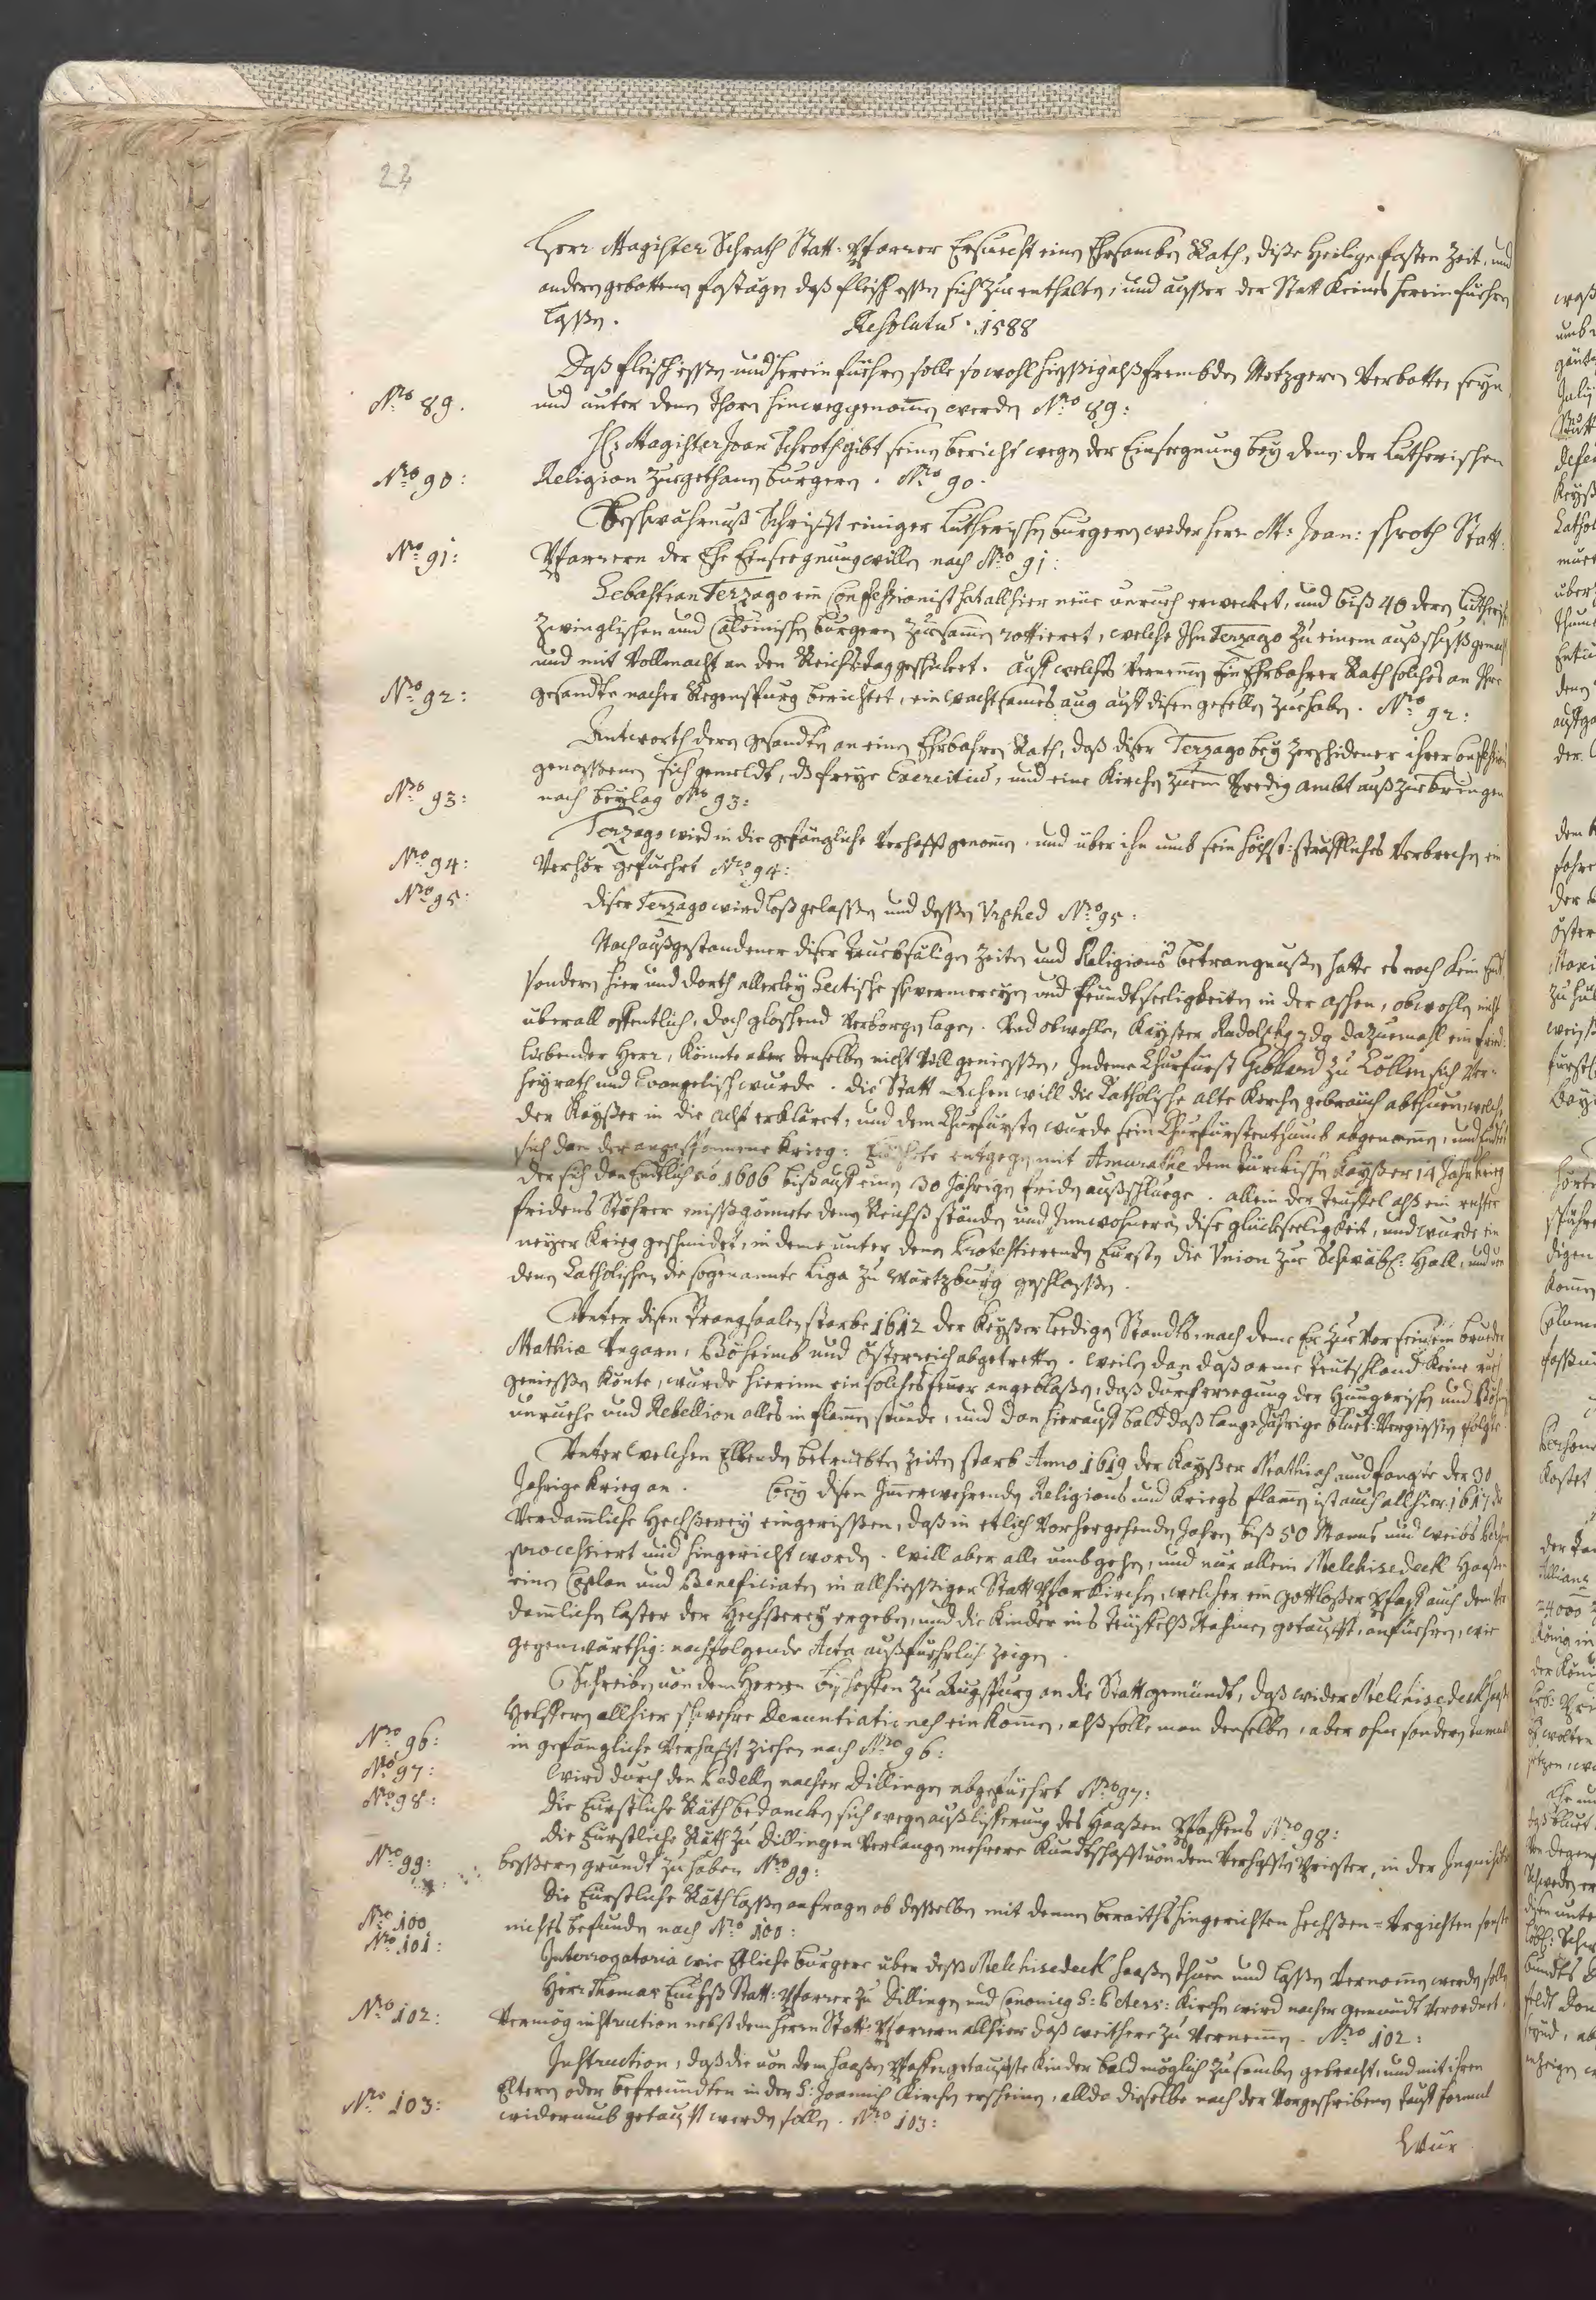 22
Herr Magister Schrath Statt-Pfarrer Ersuecht einen Ehrsamben Rath, dise Heilige fasten Zeit, und
andern gebottenen fastägen daß fleisch essen sich zue enthalten, und ausser der Statt Keines herein fuehren
lassen. Resolutum 1588
Daß fleisch essen und herein fuehren solle sowohl hiessig alß frembden Metzgeren Verbotten seyn,
Nro 89. und unter denen Thoren hinweggenomen werden Nro 89:
Hr Magister Joan Schroth gibt seinen bericht wegen der Einseegnung bey denen der Lutherischen
Nro 90: Religion zuegethanen burgeren. Nro 90.
Beschwährnuß Schrifft einiger Lutherischen burgeren wider herr M: Joan: Schroth Statt-
Nro 91: Pfarreren der Ehe Einseegnung willen nach Nro 91:
Sebastian Terzago ein Confessionist hat allhier neue unruehe erweckhet, und biß 40 deren Lutherisch
Zwinglischen und Calvinischen burgeren zuesamen rottieret, welche Ihn Terzago zu einem außschuß gemacht
und mit Vollmacht an den Reichstag geschickhet. Auff welches Vernemen Ein Ehrbahrer Rath solches an Ihre
Nro 92: gesandte nacher Regenspurg berichtet, ein wachtsames aug auff disen gesellen zue haben. Nro 92:
Antworth deren gesandten an einen Ehrbahren Rath, daß diser Terzago bey Zerschidenen ihrer
genossenen sich gemeldt, ds freye Exercitium, und eine Kirchen zuem Predig ambt auß zue bringen
Nro 93: nach beylag Nro 93:
Terzago wird in die gefängliche Verhafft genomen, und über ihn umb sein höchst-sträffliches Verbrechen ein
Nro 94: Verhör gefuehrt Nro 94:
Nro 95: diser Terzago wird loßgelassen und dessen Vrphed Nro 95:
Nach außgestandener diser truebsäligen Zeiten und Religions betrangnussen hatte es noch kein End,
sondern hier und dorth allerley Sectische schwermereyen und feindtseeligkeiten in der aschen, obwohlen nicht
überall offentlich, doch gloschend Verborgen lagen. Und obwohlen, Kayser Rudolphus dazuemahl ein frid-
liebender Herr, könnte aber denselben nicht Vill geniessen, Indeme Churfürst Gebhard zu Cöllen sich Ver-
heyrath und Evangelisch wurde. die Statt Achen will die Catholische alte Kirchen gebräuch abthuen, welche
der Kayser in die acht erkläret, und dem Churfürsten wurde sein Churfürstenthumb abgenomen, und
sich dan der angespunnene Krieg: entgegen mit Amurathe dem türckischen Kayser 14 Jahr Krieg
der sich dan Endtlich ao. 1606 biß auff einen 30 Jährigen friden außschluege. allein der teuffel alß ein rechter
fridens Stöhrer missgönnete denen Reichß ständen und Innwohneren dise glückseeligkeit, und wurde ein
neyer Krieg geschmidet, in deme unter denen Protestierenden Fürsten die Vnion zue Schwäbs: Hall, und von
denen Catholischen die sogenannte Liga zu Würtzburg geschlossen.
Unter disen Trangsaalen starbe 1612 der Keyser leedigen Standts, nach deme Er zue Vor seinem brueder
Mathiæ Vngarn, Böheimb und Österreich abgetretten. weilen dan daß arme Teutschland keine ruehe
geniessen könte, wurde hierinn ein solches feuer angeblasen, daß durch erregung der Hungerischen und Böhm
unruehe und Rebellion alles in flamen stunde, und dan hierauff bald daß lange Jährige bluet-Vergiessen folgte
Unter welchen Ellenden betruebten Zeiten starb Anno 1619 der Kayser Mathias und fangte der 30
Jährige Krieg an. bey disen Immerwehrenden Religions und Kriegs flamen ist auch allhier 1617 die
Verdamliche Hechserey eingerissen, daß in etlich Vorhergehenden Jahren biß 50 Manns und weibs
processiert und hingericht worden. Will aber alle umbgehen, und nur allein Melchisedech Haasen
einen Caplan und Beneficiaten in allhiessiger Statt Pfarrkirchen, welcher ein gottloser Pfaff auch dem Ver-
damlichen laster der Hechserey ergeben, und die Kinder ins teüffelß Nahmen getaufft, anfuehren, wie
gegenwärthig: nachfolgende Acta außfuehrlich zeigen.
Schreiben von dem Herren bischoffen zu Augspurg an die Statt gemündt, daß wider Melchisedech Haasen
Helfferen allhier schwehre Denuntiationes ein komen, alß solle man denselben, aber ohne sondern tumult
Nro 96: in gefängliche Verhafft ziehen nach Nro 96:
Nro 97: Wird durch den Pedellen nacher Dillingen abgefuehrt Nro 97:
Nro 98: die Fürstliche Räth bedancken sich wegen außlifferung des Haasen Pfaffens Nro 98:
die Fürstliche Räth zu Dillingen Verlangen mehrere Kundtschafft von dem Verhafften Priester, in der Inquisition
Nro 99: bessern grundt zu haben Nro 99:
die Fürstliche Räth lassen anfragen ob desselben mit denen beraiths hingerichten hechsen-Vrgichten sonsten
Nro 100 nichts befunden nach Nro 100:
Nro 101: Interrogatoria wie Etliche burgere über dess Melchisedech Haasen Thuen und lassen Vernomen werden sollen
Herr Thomas Fuchß Statt-Pfarrer zu Dillingen und Canonicus S: Peters: Kirchen wird nacher gemündt Verordnet,
Nro 102: Vermög instruction nebst dem herrn Statt-Pfarrern allhier daß weithere zu Vernemen. Nro 102:
Instruction, daß die von dem Haasen Pfaffen getauffte Kinder bald möglich zusamben gebracht, und mit ihren
Eltern oder befreundten in der S: Joannis Kirchen erscheinen, allda dieselbe nach der Vorgeschribenen tauff formul
Nro 103: widerumb getaufft werden sollen. Nro 103:
Wür